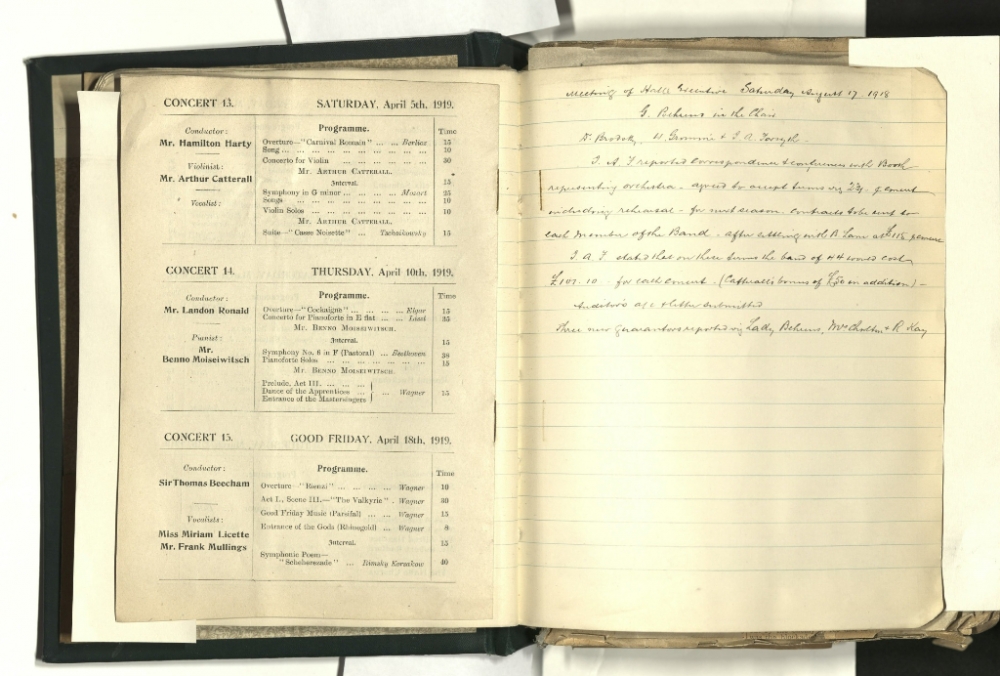 CONCERT 13. SATURDAY, April 5th, 1919.
Conductor:
Mr. Hamilton Harty
Violinist:
Mr. Arthur Catterall
Vocalist:
Programme. Time
Overture—"Carnival Romain" ... ... Berlioz 15
Song ... ... ... ... ... ... ... ... 10
Concerto for Violin ... ... ... ... ... 30
Mr. ARTHUR CATTERALL.
Interval. 15
Symphony in G minor ... ... ... Mozart 25
Songs ... ... ... ... ... ... ... ... 10
Violin Solos ... ... ... ... ... ... 10
Mr. ARTHUR CATTERALL.
Suite—"Casse Noisette" ... Tschaikowsky 15
CONCERT 14. THURSDAY, April 10th, 1919.
Conductor:
Mr. Landon Ronald
Pianist:
Mr.
Benno Moiseiwitsch
Programme. Time
Overture—"Cockaigne" ... ... ... Elgar 15
Concerto for Pianoforte in E flat ... ... Liszt
Mr. BENNO MOISEIWITSCH.
Interval. 15
Symphony No. 6 in F (Pastoral) ... Beethoven
Pianoforte Solos ... ... ... ... ... 15
Mr. BENNO MOISEIWITSCH.
Prelude, Act III. ... ... ...
Dance of the Apprentices ... ... Wagner 15
Entrance of the Mastersingers
CONCERT 15. GOOD FRIDAY, April 18th, 1919.
Conductor:
Sir Thomas Beecham
Vocalists:
Miss Miriam Licette
Mr. Frank Mullings
Programme. Time
Overture—"Rienzi" ... ... ... ... Wagner 10
Act I., Scene III.—"The Valkyrie" . Wagner
Good Friday Music (Parsifal) ... Wagner 15
Entrance of the Gods (Rhinegold) ... Wagner 8
Interval. 15
Symphonic Poem—
"Scheherazade" ... Rimsky Korsakow 40
Meeting of Hallé Executive Saturday August 17 1918
G. Behrens in the Chair
Dr Brodsky, & J A Forsyth
J. A. F reported correspondence & conferences with Booth
representing orchestra - agreed to accept terms viz concert
including rehearsal - for next season. Contracts to be sent to
each member of the Band - after settling with
J. A. F stated that on these terms the band of 44 would cost
£107. 10 - for each concert. (Catterall's bonus of £50 in addition) -
Auditor's a/c & letter submitted
Three new guarantors reported viz Lady Behrens, & R Kay